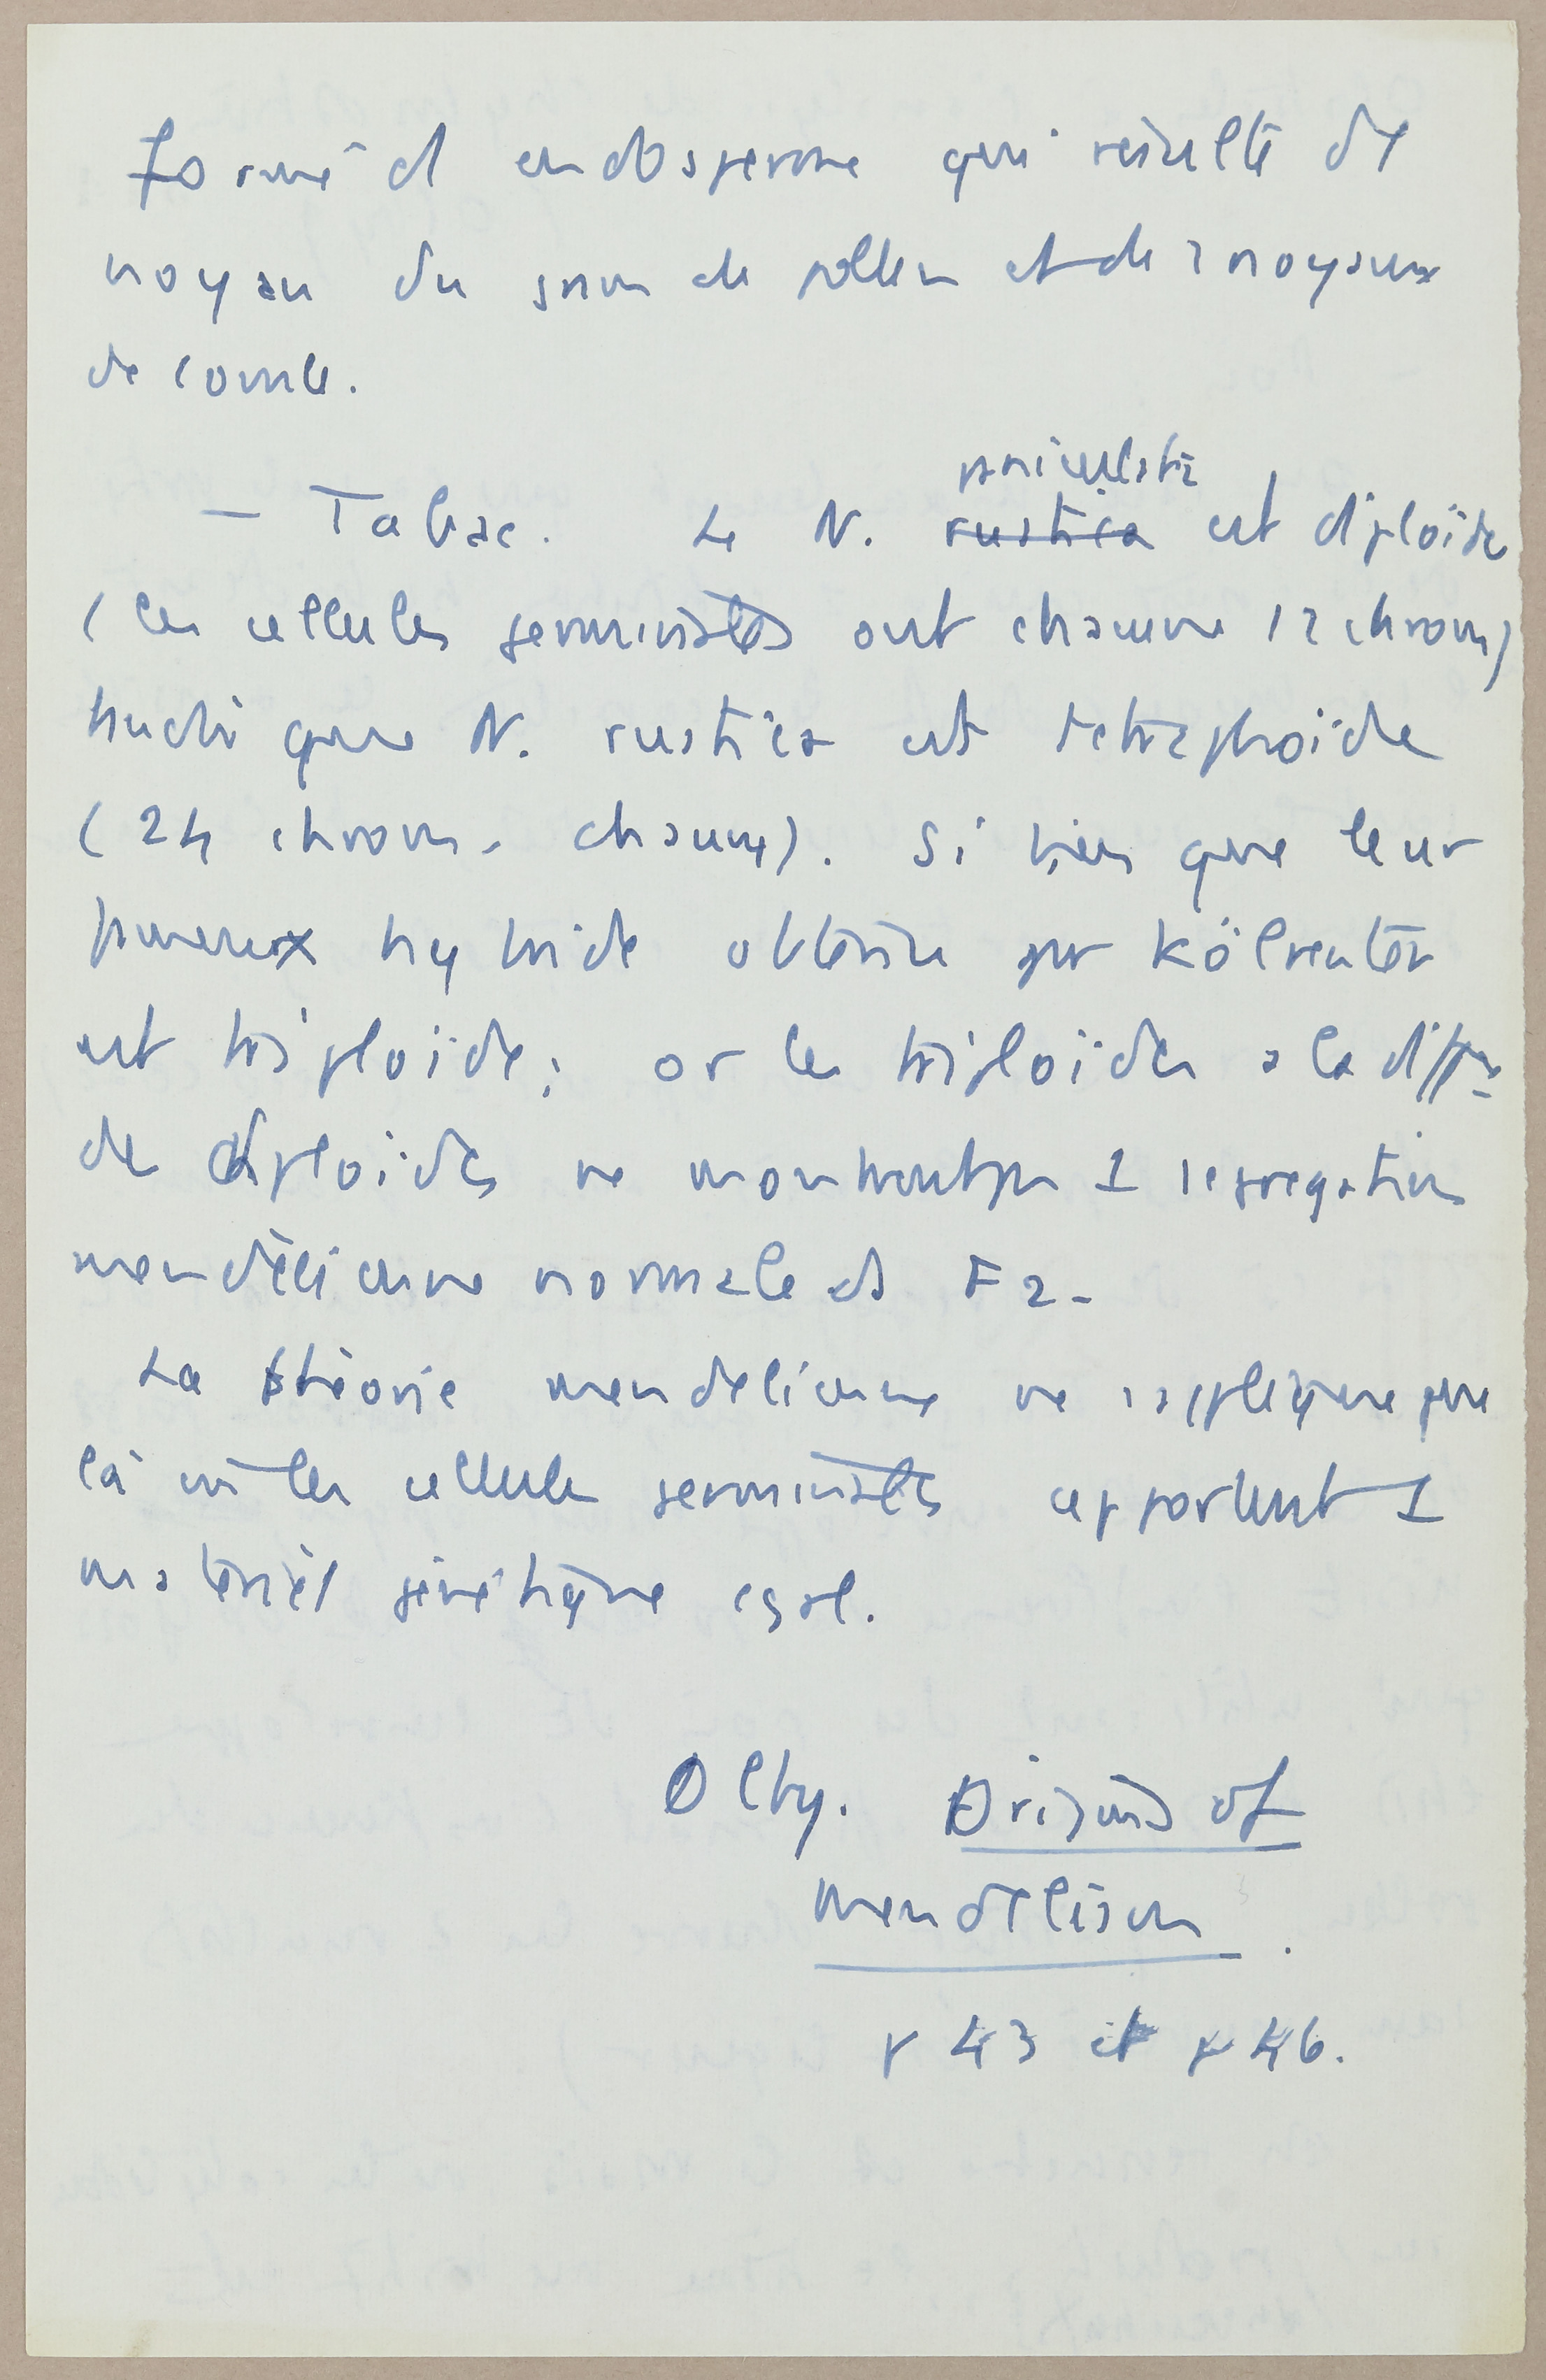 formé d endosperme qui résulte de
noyau du grain de pollen et de 2 noyaux
de l ovule.
paniculata
– Tabac. Le N. rustica est diploïde
(les cellules germinales ont chacune 12 chrom)
tandis que N. rustica est tetraploïde
(24 chrom. chacune). Si bien que leur
fameux hybride obtenu par Kölreuter
est triploïde; or les triploïdes a la diff
des diploïdes ne montrent pas 1 segregation
mendélienne normale ds F2.
La théorie mendelienne ne s applique que
là où les cellules germinales apportent 1
matériel génétique egal.
Olby. Origins of
mendelism.
p 43 et p 46.